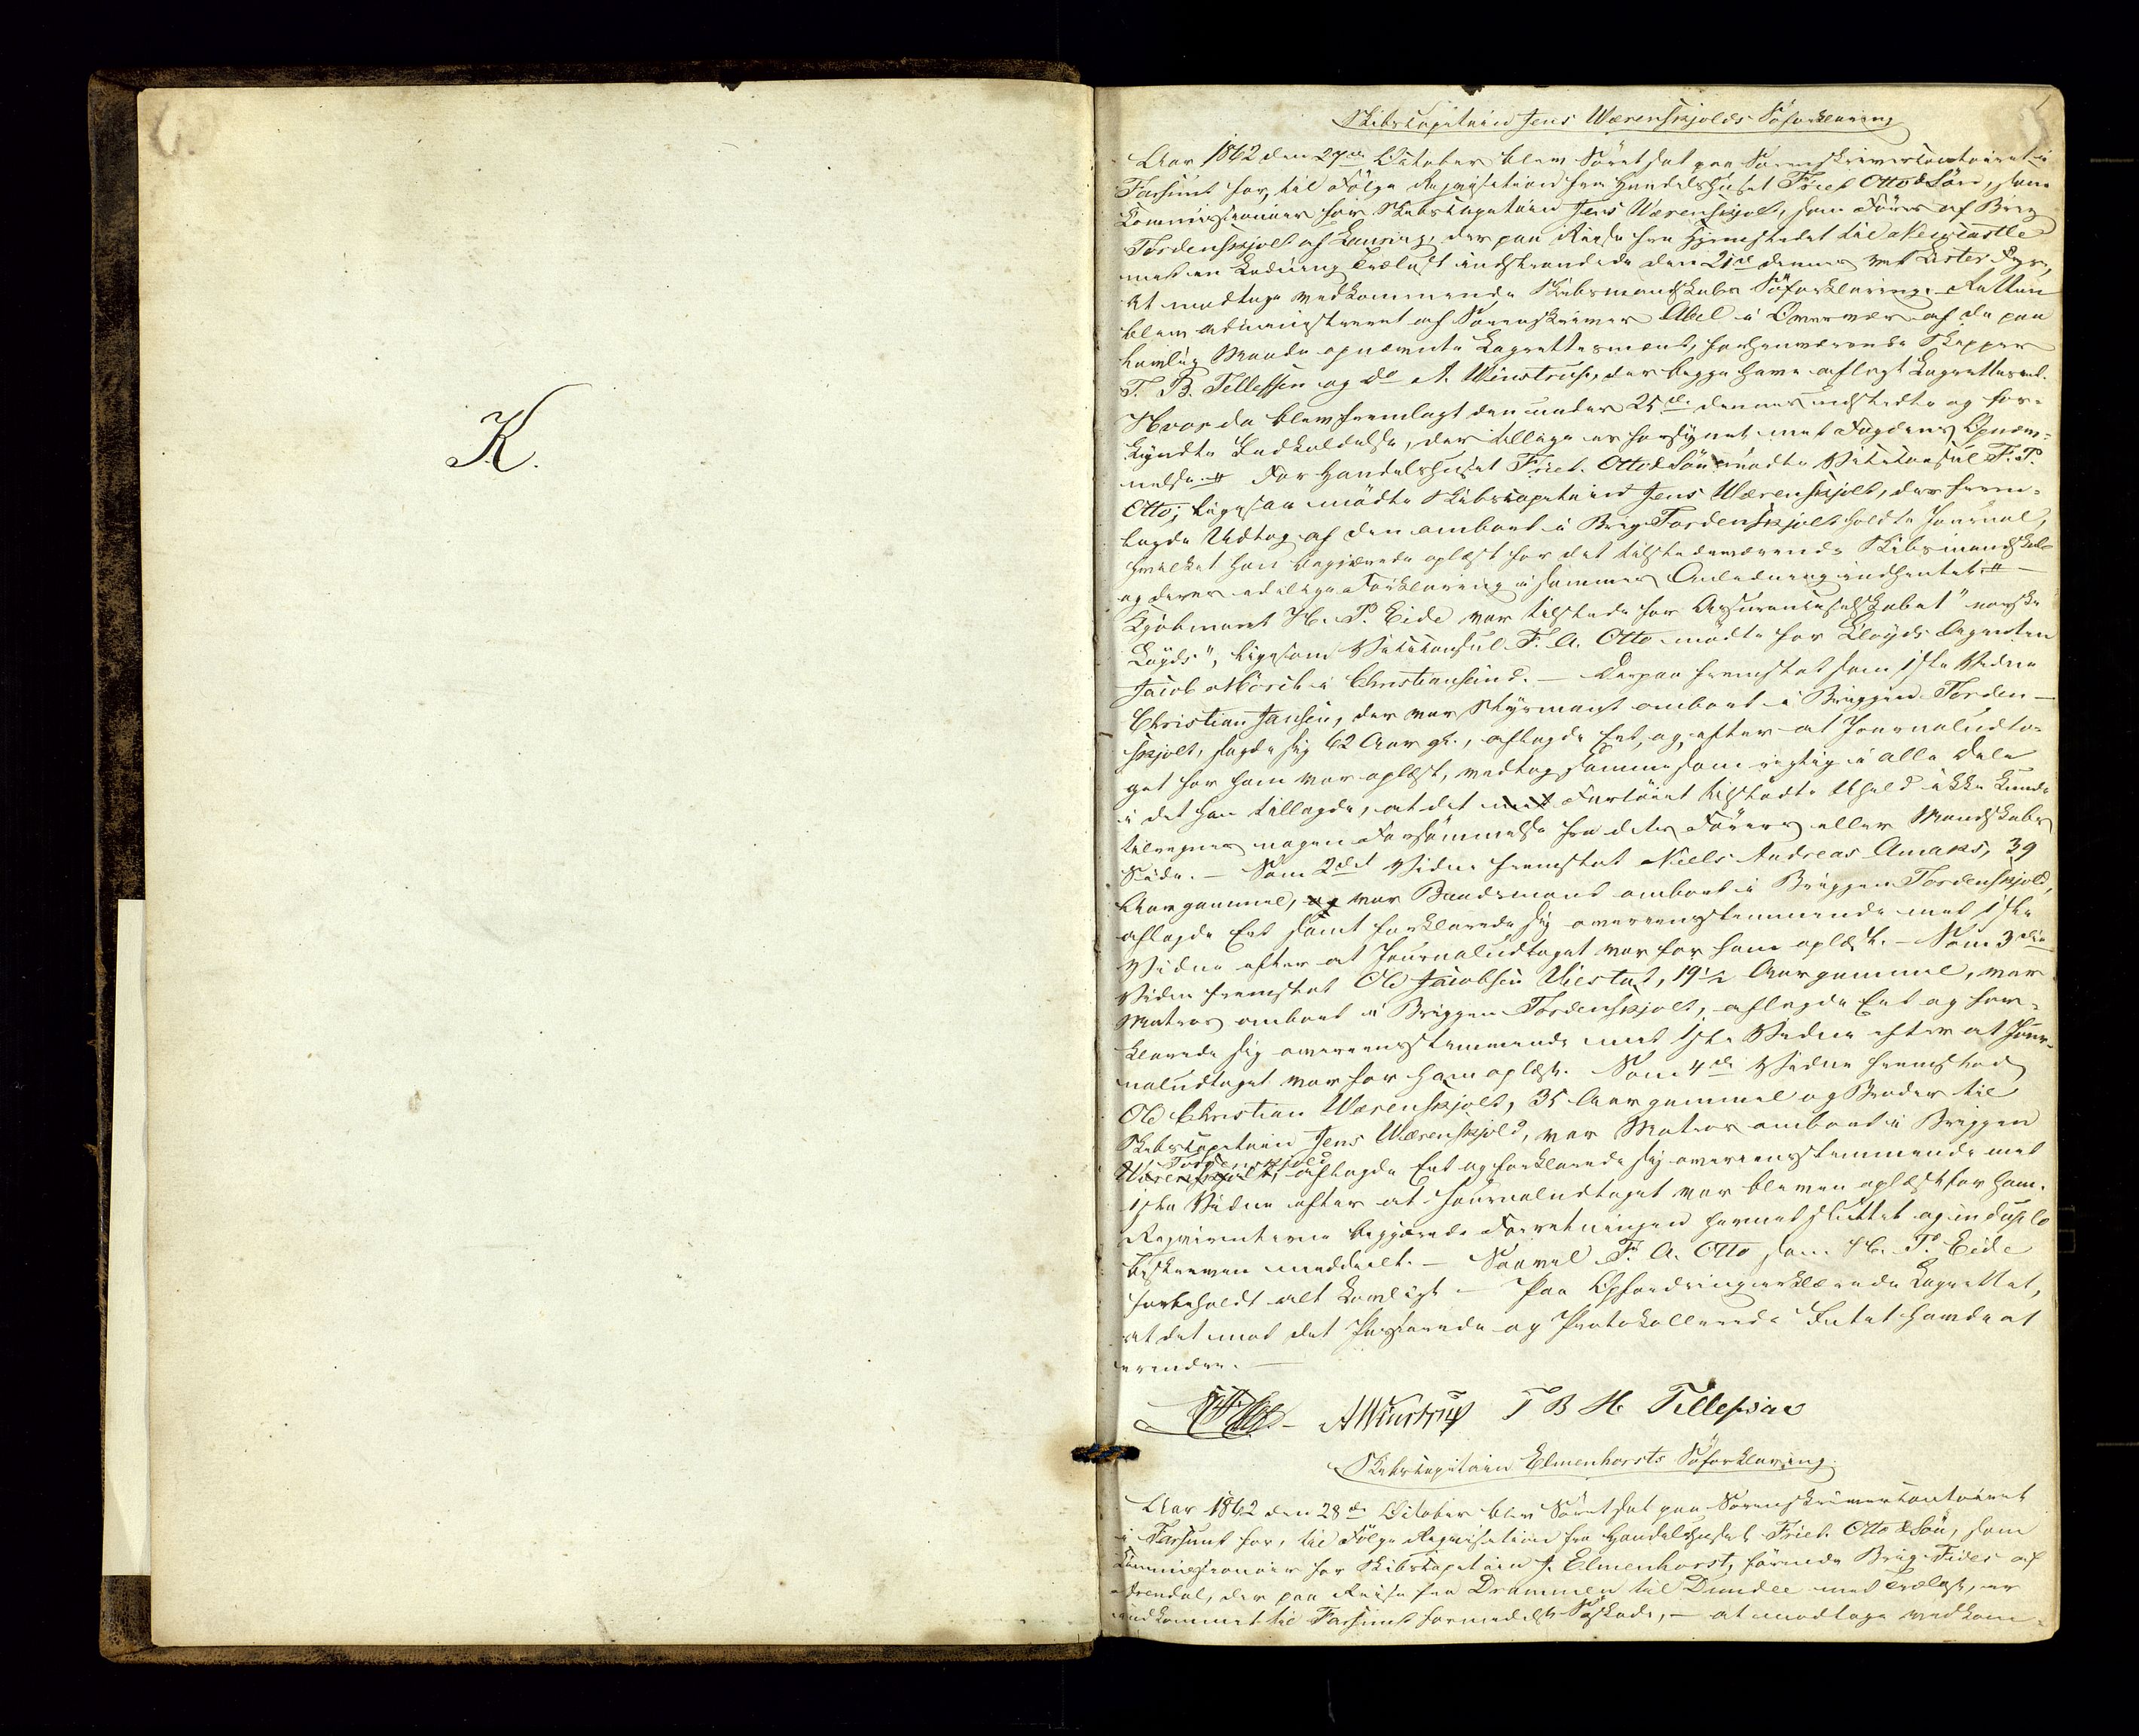 K.
1
Skibscapitain Jens Wærenskjolds Søforklaring
Aar 1862 den 27de October blev Søret sat paa Sorenskrivercontoiret i
Farsund for, til Følge Reqvisition fra Handelshuset Fried. Otto & Søn, som
Commissionair for Skibscapitain Jens Wærenskjold, som Fører af Brig
Tordenskjold af Laurvig, der paa Reise fra Hjemstedet til Newcastle
med en Ladning Trælast indstrandede den 21de dennes ved Lister Fyr,
at modtage vedkommende Skibsmandskabs Søforklaring. Retten
blev administreret af Sorenskriver Abel i Overvær af de paa
lovlig Maade opnævnte Lagrettesmænd, forhenværende Skipper
T. B. Tellefsen og do A. Winstrup, der begge have aflagt Lagretteseed.
Hvorda blev fremlagt den under 25de dennes udstedte og for-
kyndte Indkaldelse, der tillige er forsynet med Fogdens Opnæv-
nelse. For Handelshuset Fried. Otto & Søn mødte Viceconsul F. P.
Otto; ligesaa mødte Skibscapitain Jens Wærenskjold, der frem-
lagde Udtog af den ombord i Brig Tordenskjold holdte Journal,
hvilket han begjærede oplæst for det tilstedeværende Skibsmandskab
og deres edelige Forklaring i sammes Anledning indhentet. —
Kjøbmand H. P. Eide var tilstede for Assuranceselskabet "norske
Loyds", ligesom Viceconsul F. A. Otto mødte for Lloyds Agenten
Jacob Mørch i Christiansund. — Derpaa fremstod som 1ste Vidne
Christian Jansen, der var Styrmand ombord i Briggen Torden-
skjold, sagde sig 62 Aar gl., aflagde Eed, og, efter at Journaludto-
get for ham var oplæst, vedtog samme som rigtig i alle Dele
i det han tillagde, at det med Fartøiet tilstødte Uheld ikke kunde
tilregnes nogen Forsømmelse fra dets Førers eller Mandskabs
Side. — Som 2det Vidne fremstod Niels Andreas Amaks, 39
Aar gammel, og var Baadsmand ombord i Briggen Tordenskjold,
aflagde Eed samt forklarede sig overeensstemmende med 1ste
Vidne efter at Journaludtoget var for ham oplæst. — Som 3die
Vidne fremstod Ole Jacobsen Viestad, 19½ Aar gammel, var
Matros ombord i Briggen Tordenskjold, aflagde Eed og for-
klarede sig overeensstemmende med 1ste Vidne efter at Jour-
naludtoget var for ham oplæst. Som 4de Vidne fremstod
Ole Christian Wærenskjold, 35 Aar gammel og Broder til
Skibscapitain Jens Wærenskjold, var Matros ombord i Briggen
Tordenskjold
Wærenskjold, aflagde Eed og forklarede sig overeensstemmende med
1ste Vidne efter at Journaludtoget var bleven oplæst for ham.
Reqvirenterne begjærede Forretningen hermed sluttet og in duplo
beskreven meddeelt. — Saavel F. A. Otto som H. P. Eide
forbeholdt alt Lovligt. — Paa Opfordring erklærede Lagrettet,
at det mod det Passerede og Protokollerede Intet havde at
erindre. —
Abel A Winstrup T B H Tellefsen
Skibscapitain Elmenhorsts Søforklaring.
Aar 1862 den 28de October blev Søret sat paa Sorenskrivercontoiret
i Farsund for, til Følge Reqvisition fra Handelshuset Fried. Otto & Søn, som
Commissionair for Skibscapitain J. Elmenhorst, førende Brig Fides af
Arendal, der paa Reise fra Drammen til Dundee med Trælast, er
indkommet til Farsund formedelst Søskade, — at modtage vedkom-